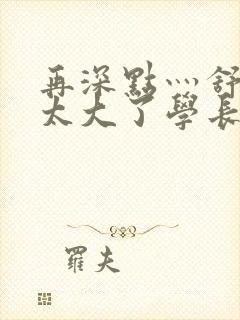 再深點灬舒
太大了學長
羅夫